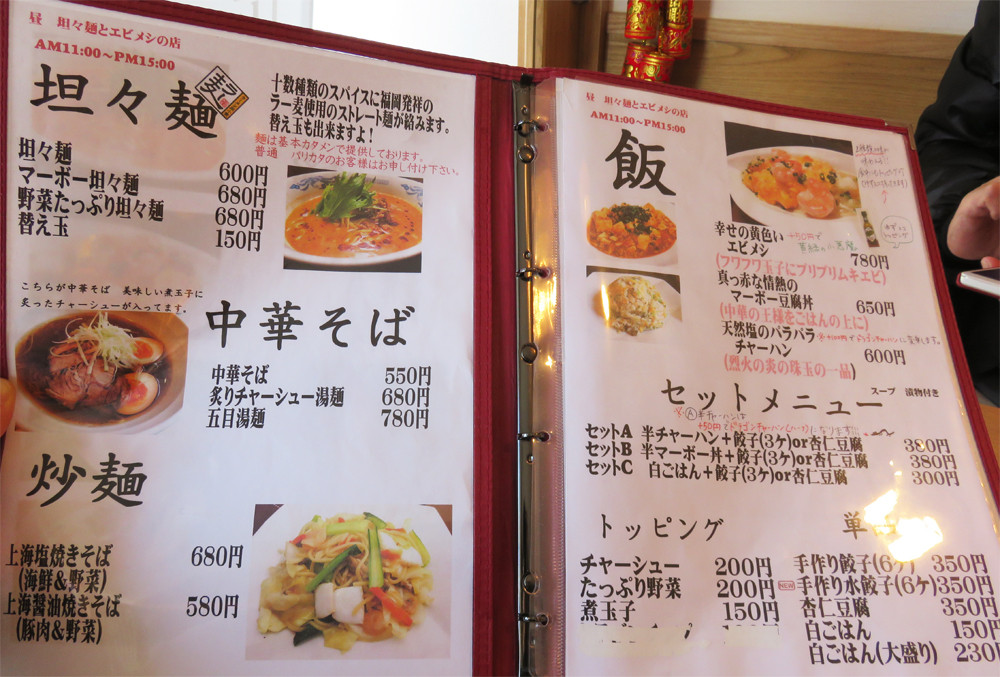 昼 坦々麺とエビメシの店
AM11:00～PM15:00
坦々麺
十数種類のスパイスに福岡発祥の
ラー麦使用のストレート麺が絡みます。
替え玉も出来ますよ！
麺は基本カタメンで提供しております。
普通 バリカタのお客様はお申し付け下さい。
坦々麺 600円
マーボー坦々麺 680円
野菜たっぷり坦々麺 680円
替え玉 150円
こちらが中華そば 美味しい煮玉子に
炙ったチャーシューが入ってます。
中華そば
中華そば 550円
炙りチャーシュー湯麺 680円
五目湯麺 780円
炒麺
上海塩焼きそば 680円
(海鮮&野菜)
上海醤油焼きそば 580円
(豚肉&野菜)
昼 坦々麺とエビメシの店
AM11:00～PM15:00
飯
幸せの黄色い +50円で
エビメシ 780円
(フワフワ玉子にプリプリムキエビ)
真っ赤な情熱の
マーボー豆腐丼 650円
(中華の王様をごはんの上に)
天然塩のパラパラ
チャーハン 600円
(烈火の炎の珠玉の一品)
セットメニュー スープ 漬物付き
Ⓐ半チャーハンは
+50円でドラゴンチャーハン(ハーフ)になります。
セットA 半チャーハン+餃子(3ケ)or杏仁豆腐 380円
セットB 半マーボー丼+餃子(3ケ)or杏仁豆腐 380円
セットC 白ごはん+餃子(3ケ)or杏仁豆腐 300円
トッピング
チャーシュー 200円
たっぷり野菜 200円
煮玉子 150円
単
手作り餃子(6ケ) 350円
NEW 手作り水餃子(6ケ) 350円
杏仁豆腐 350円
白ごはん 150円
白ごはん(大盛り) 230円